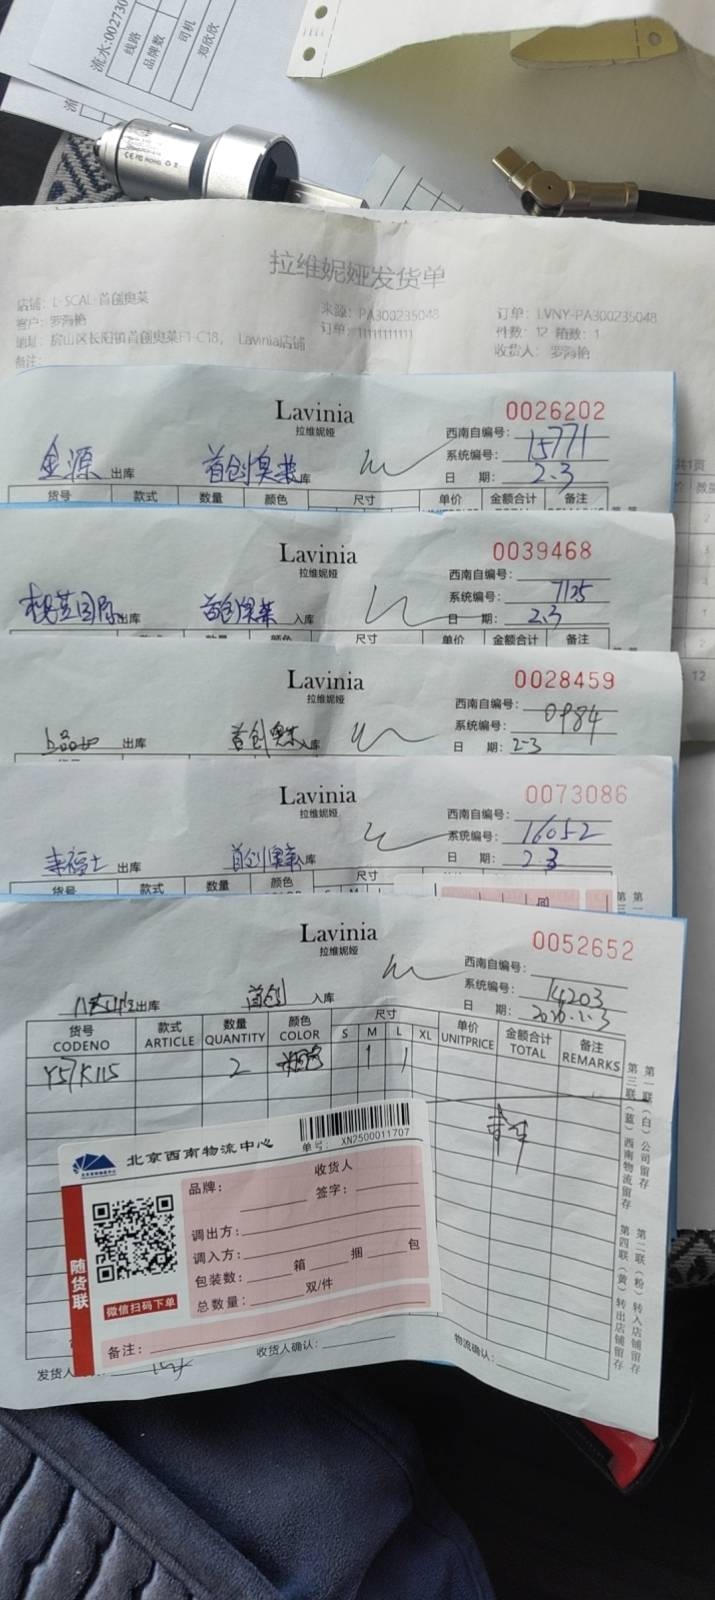 流水:002730
线路
品牌数
司机
郑欣欣
拉维妮娅发货单
店铺: L-SCAL-首创奥莱
来源: PA300235048
订单: LVNY-PA300235048
客户: 罗海艳
订单: 11111111111
件数: 12 箱数: 1
地址: 房山区长阳镇首创奥莱F1-C18, Lavinia店铺
收货人: 罗海艳
备注:
共1页
12
Lavinia
拉维妮娅
0026202
西南自编号:
系统编号: 15771
金源 出库 首创奥莱 库
日 期: 2.3
货号 款式 数量 颜色 尺寸 单价 金额合计 备注
Lavinia
拉维妮娅
0039468
西南自编号:
系统编号: 7125
出库 首创奥莱 入库
日 期: 2.3
款式 数量 颜色 尺寸 单价 金额合计 备注
Lavinia
拉维妮娅
0028459
西南自编号:
系统编号: 0984
出库 首创奥莱 入库
日 期: 2-3
Lavinia
拉维妮娅
0073086
西南自编号:
系统编号: 16052
出库 首创奥莱 库
日 期: 2.3
货号 款式 数量 颜色 尺寸 单价 金额合计 备注
Lavinia
拉维妮娅
0052652
西南自编号:
系统编号: 14203
出库 首创 入库
日 期:
货号 款式 数量 颜色 尺寸 单价 金额合计 备注
CODENO ARTICLE QUANTITY COLOR S M L XL UNITPRICE TOTAL REMARKS
Y57K115 2 1 1
第一联(白)公司留存
第二联(粉)转入店铺留存
第三联(蓝)西南物流留存
第四联(黄)转出店铺留存
北京西南物流中心
单号: XN2500011707
随货联
微信扫码下单
收货人
品牌: 签字:
调出方:
调入方:
包装数: 箱 捆 包
总数量: 双/件
备注:
发货人
收货人确认:
物流确认: